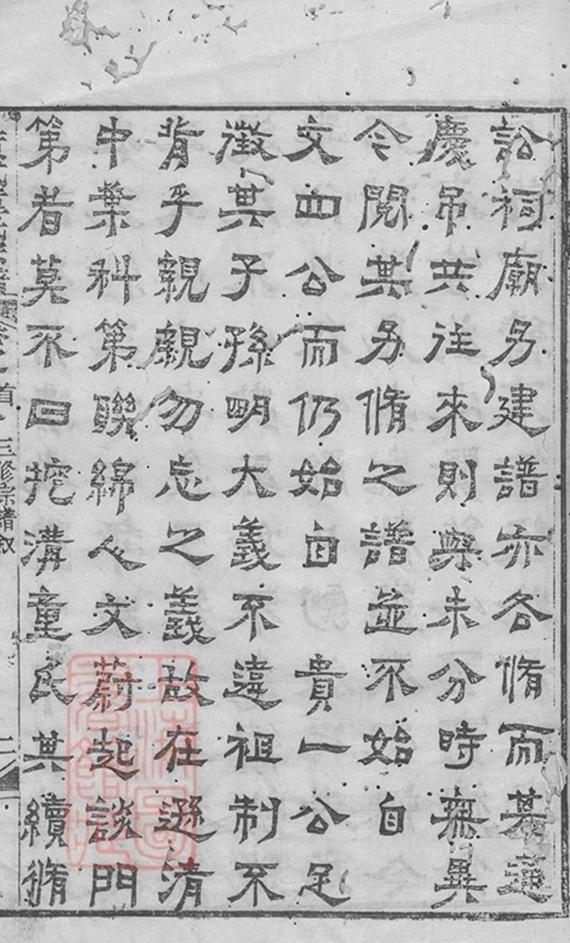 訟祠廟另建譜亦各脩而墓
慶吊共往來則與未分時無異
今閱其另脩之譜並不始自
文四公而仍始自 貴一公足
徵其子孫明大義不違祖制不
背乎親親勿忘之義故在遜清
中葉科第聯綿人文蔚起談門
第者莫不曰挖溝童氏其續脩
首 三修宗譜叙